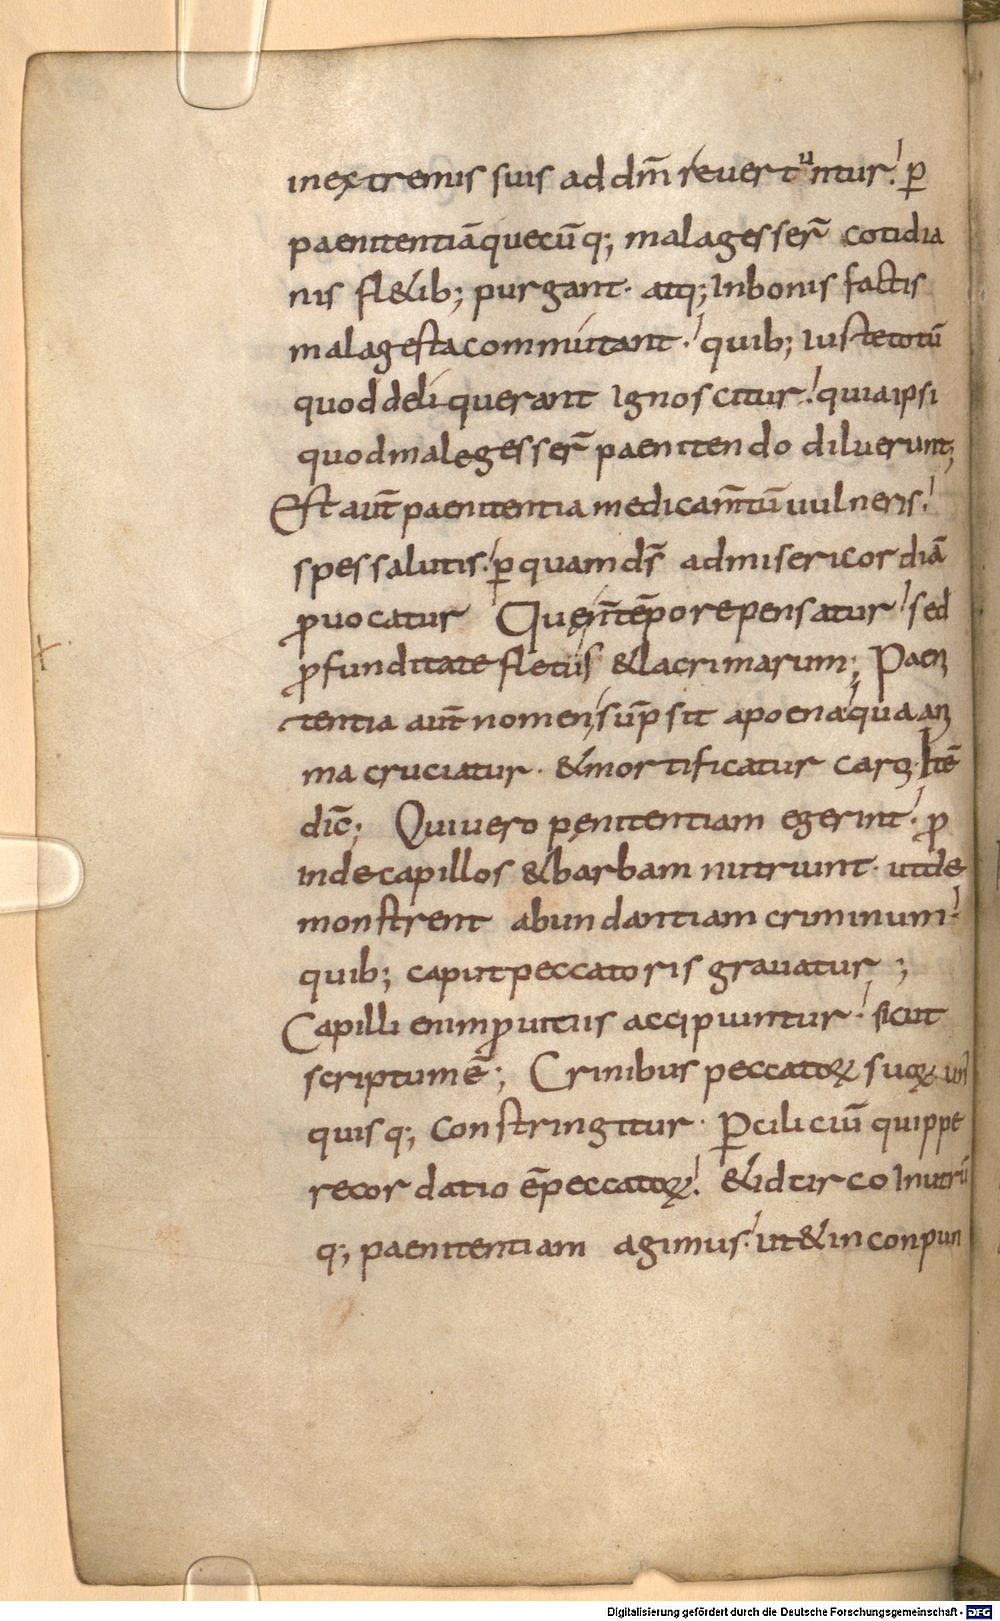 inextremis suis ad dm̄ reuertuntur. ꝑ
paenitentiā quecūq; malagesser̄ cotidia
nis fl&ib; purgant· atq; Inbonis factis
malagesta commutant· quib; Iuste totū
quod deliquerant Ignoscitur. quia ipsi
quod male gesser̄ paenitendo diluerunt;
Est aut̄ paenitentia medicam̄tū uulneris.
spes salutis. ꝑ quam ds̄ ad misericordiā
ꝓuocatur Que n̄ tēpore pensatur sed
ꝓfunditate fletus & lacrimarum; Paeni
tentia aut̄ nomen sūpsit a poena qua ani
ma cruciatur· & mortificatur caro· Itē
dic̄; Qui uero pęnitentiam egerint· ꝓ
inde capillos & barbam nutriunt· ut de
monstrent abundantiam criminum·
quib; caput peccatoris grauatur;
Capilli enim ꝓ uitiis accipiuntur· sicut
scriptum ē; Crinibus peccatoꝝ suoꝝ un
quisq; constringitur· Ꝑ ciliciū quippe
recordatio ē peccatoꝝ. & idcirco In utrū
q; paenitentiam agimus. ut & in conpun
Digitalisierung gefördert durch die Deutsche Forschungsgemeinschaft - DFG